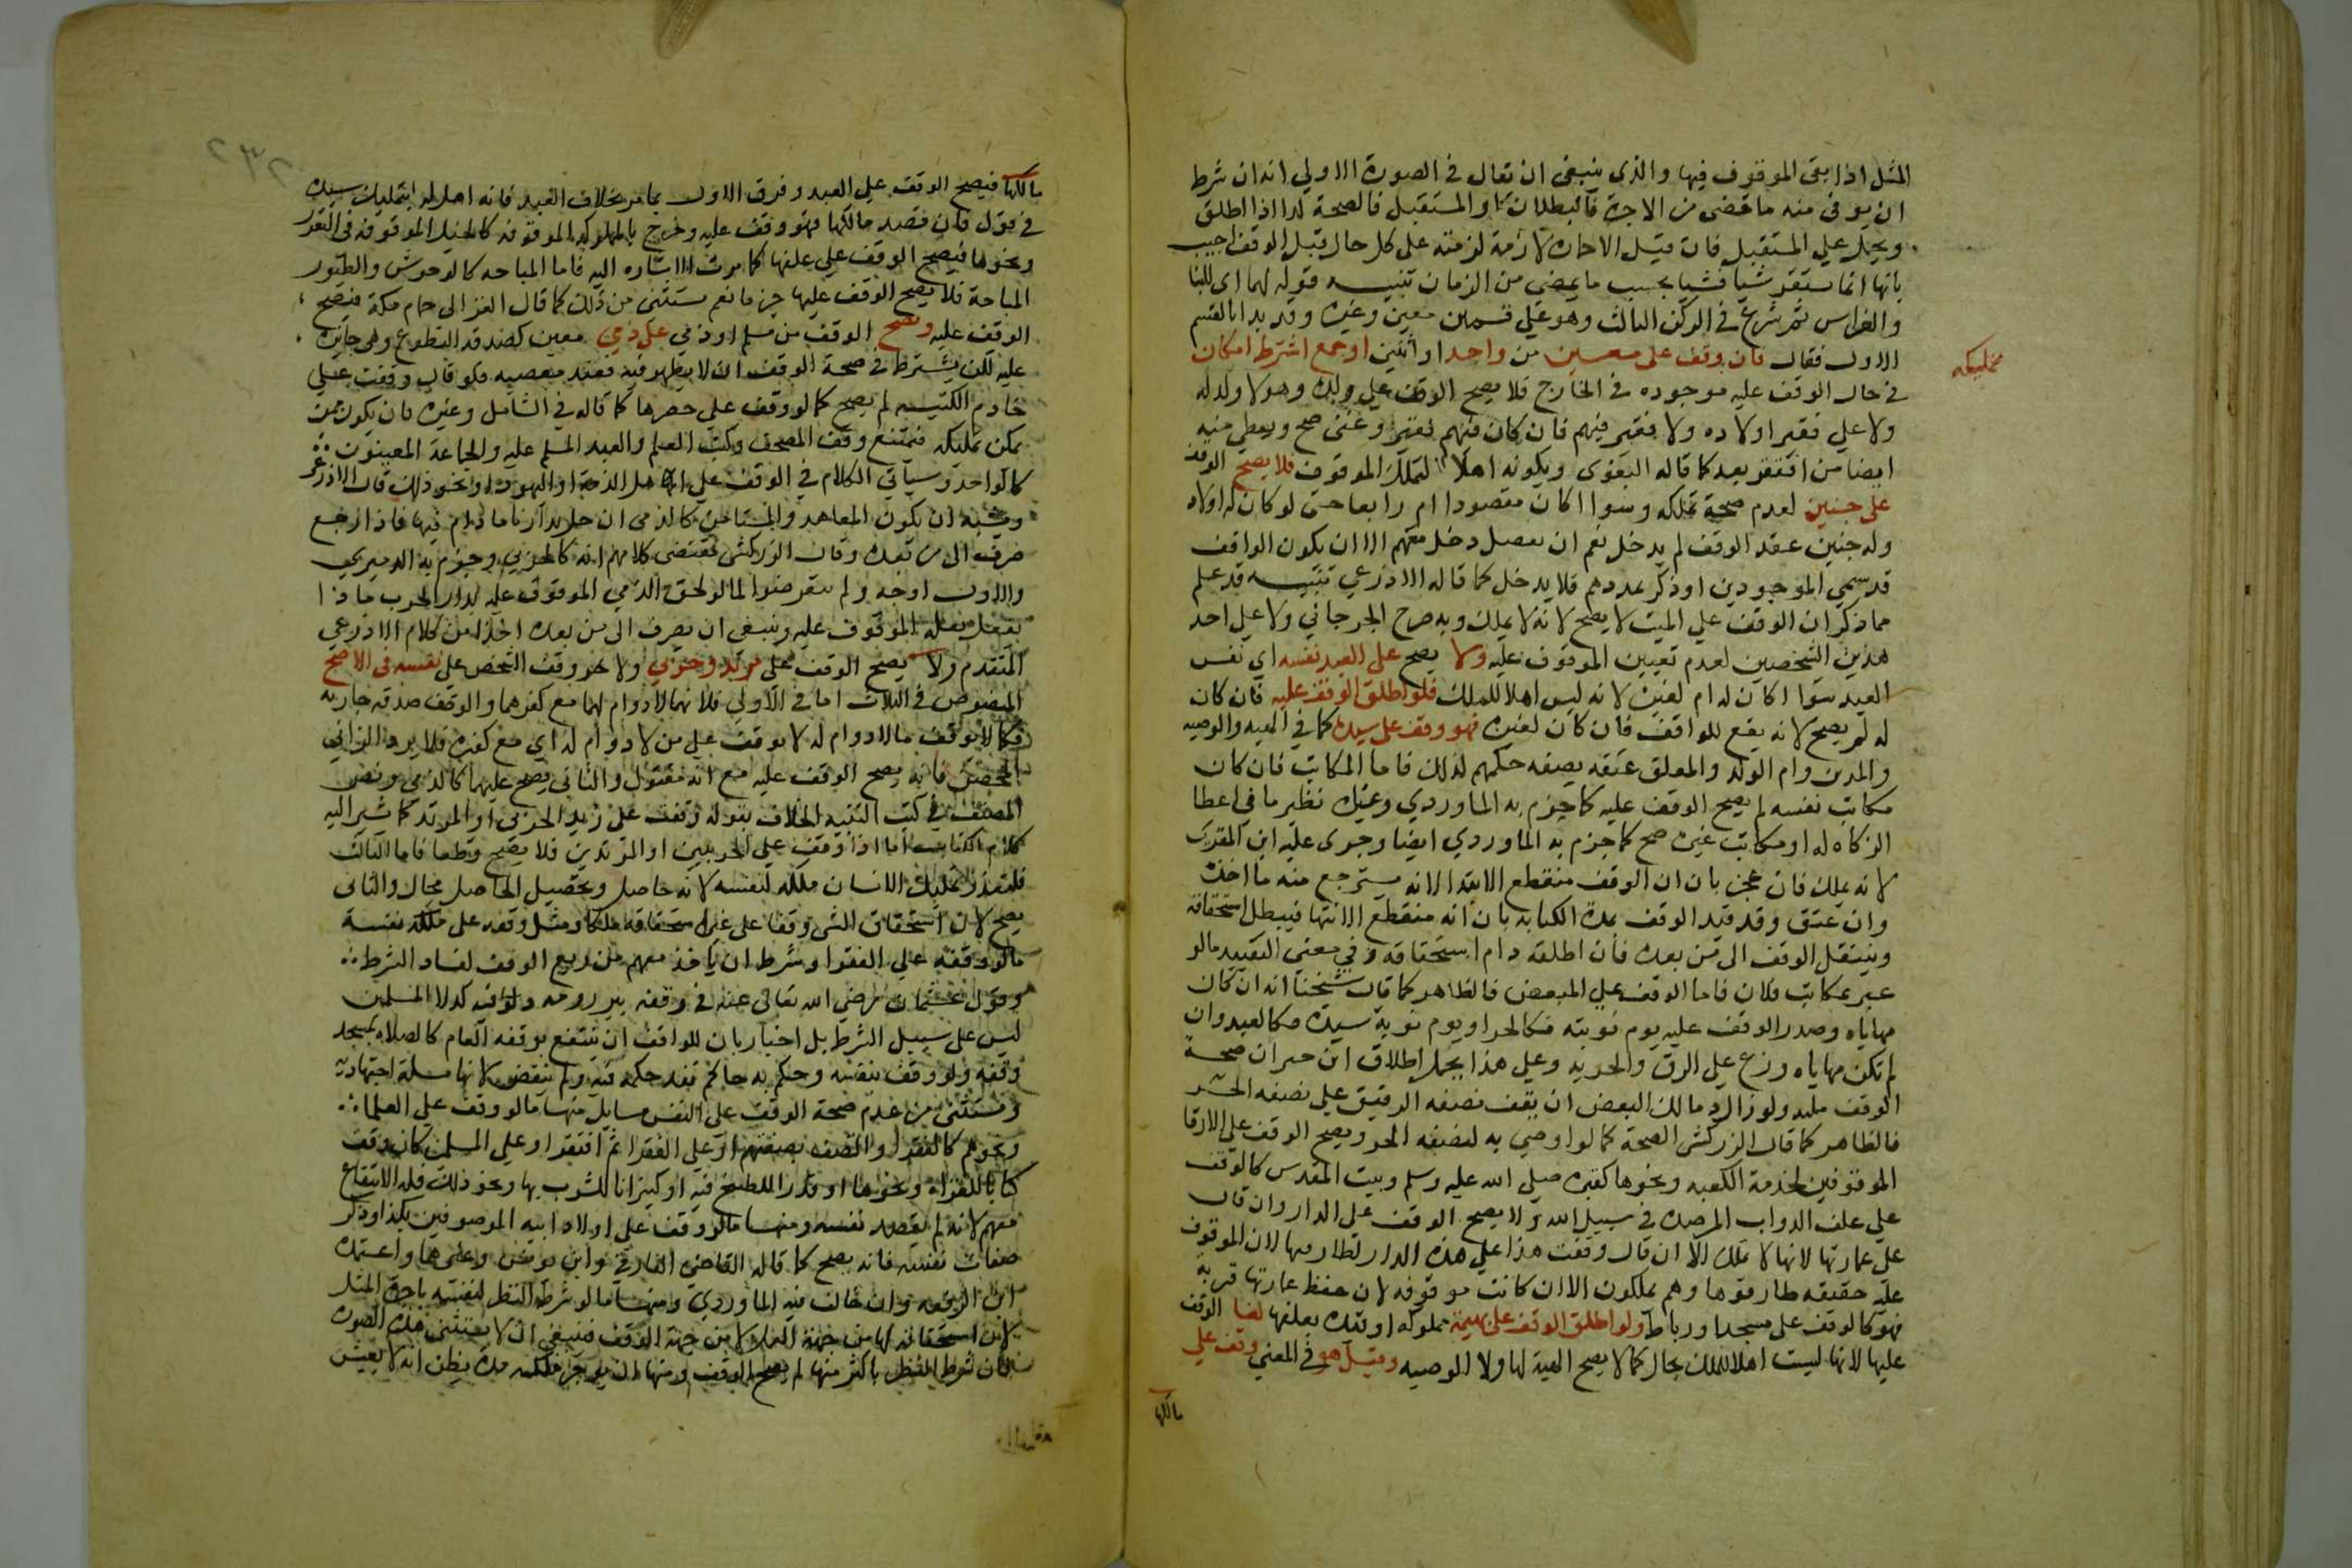 المثل اذا بقى الموقوف فيها والذي ينبغي ان تقال في الصورة الاولي انه ان شرط
ان يوفى منه ما مضى من الاجرة فالبطلان او المستقبل فالصحة كذا اذا اطلق
ويحمل علي المستقبل فان قيل الاجارة لازمة لزمته على كل حال قبل الوقف اجيب
بانها انما تستقر شيا فشيا بحسب ما يمضي من الزمان تنبيه قوله لهما اى للبنا
والغراس ثم شرع في الركن الثالث وهو علي قسمين معين وغيره وقد بدا بالقسم
الاول فقال فان وقف على معين من واحد او اثنين او جمع اشترط امكان
تمليكه
في حال الوقف عليه موجوده في الخارج فلا يصح الوقف علي ولده وهو لا ولد له
ولا علي فقير اولاده ولا فقير فيهم فان كان فيهم فقير وغني صح ويعطي منه
ايضا من افتقر بعد كما قاله البغوى وبكونه اهلا لتملك الموقوف فلا يصح الوقف
على جنين لعدم صحة تملكه وسوا اكان مقصودا ام رابعا حتى لو كان له اولاد
وله جنين عقد الوقف لم يدخل نعم ان نفصل دخل معهم الا ان يكون الواقف
قد سمي الموجودين او ذكر عددهم فلا يدخل كما قاله الاذرعي تنبيه قد علم
مما ذكر ان الوقف علي الميت لا يصح لانه لا يملك وبه صرح الجرجاني ولا علي احد
هذين الشخصين لعدم تعيين الموقوف عليه ولا يصح على العبد نفسه اي نفس
العبد سوا اكان له ام لغيره لانه ليس اهلا للملك فلو اطلق الوقف عليه فان كان
له لم يصح لانه يقع للواقف فان كان لغيره فهو وقف على سيده كما في الهبه والوصيه
والمدبر وام الولد والمعلق عتقه بصفه حكمهم لذلك فاما المكاتب فان كان
مكاتب نفسه لم يصح الوقف عليه كما جزم به الماوردي وغيره نظير ما في اعطا
الزكاه له او مكاتب غيره صح كما جزم به الماوردي ايضا وجرى عليه ابن المقرى
لانه يملك فان عجز بان ان الوقف منقطع الابتدا لانه يسترجع منه ما اخذه
وان عتق وقد قيد الوقف بمدة الكتابه بان انه منقطع الانتها فيبطل استحقاقه
وينتقل الوقف الى من بعده فان اطلقه دام استحقاقه وفي معنى التقييد مالو
عبر بمكاتب فلان فاما الوقف علي المبعض فالظاهر كما قال شيخنا انه ان كان
مهاياه وصدر الوقف عليه يوم نوبته فكالحر او يوم نوبة سيده فكالعبد وان
لم تكن مهاياه وزع علي الرق والحريه وعلي هذا يحمل اطلاق ابن خيران صحة
الوقف عليه ولو اراد مالك البعض ان يقف نصفه الرقيق علي نصفه الحر
فالظاهر كما قال الزركشي الصحة كما لو اوصي به لنصفه الحر ويصح الوقف على الارقا
الموقوفين لخدمة الكعبه ونحوها كقبره صلى الله عليه وسلم وبيت المقدس كالوقف
علي علف الدواب المرصده في سبيل الله ولا يصح الوقف علي الدار وان قال
على عمارتها لانها لا تملك الا ان قال وقفت هذا علي هذه الدار لطارقيها لان الموقوف
عليه حقيقه طارقوها وهم يملكون الا ان كانت موقوفه لان حفظ عمارتها قربة
فهو كالوقف على مسجد او رباط ولو اطلق الوقف على بهيمة مملوكه او قيده بعلفها لغا الوقف
عليها لانها ليست اهلا للملك بحال كما لا يصح الهبة لها ولا الوصيه وقيل هو في المعنى وقف علي
مالكها
٢٣٢
مالكها فيصح الوقف علي العبد وفرق الاول بما مر بخلاف العبد فانه اهل له بتمليك سيده
في قول فان قصد مالكها فهو وقف عليه وخرج بالمملوكه الموقوفه كالخيل الموقوفه في الثغور
ونحوها فيصح الوقف علي علفها كما مرت الاشاره اليه فاما المباحه كالوحوش والطيور
المباحة فلا يصح الوقف عليها جزما نعم يستثنى من ذلك كما قال الغزالى حمام مكة فيصح
الوقف عليه ويصح الوقف من مسلم او ذمي على ذمي معين كصدقه التطوع وهي جايزه
عليه لكن يشترط في صحة الوقف ان لا يظهر فيه قصد معصيه فلو قال وقفت علي
خادم الكنيسه لم يصح كما لو وقف على حصرها كما قاله في الشامل وغيره فان يكون ممن
يمكن تمليكه فيمتنع وقف المصحف وكتب العلم والعبد المسلم عليه والجماعة المعينون
كالواحد وسياتي الكلام في الوقف علي اهل الذمة او اليهود او نحو ذلك قال الاذرعي
ويشبه ان يكون المعاهد والمستامن كالذمي ان حل بدارنا مادام فيها فاذا رجع
صرف الى من بعده وقال الزركشي مقتضى كلامهم انه كالحربي وجزم به الدميري
والاول اوجه ولم يتعرضوا لما لو لحق الذمي الموقوف عليه بدار الحرب ماذا
يفعل بغلة الموقوف عليه وينبغي ان تصرف الى من بعده اخذا من كلام الاذرعي
المتقدم ولا يصح الوقف على مرتد وحربي ولا هو وقف الشخص على نفسه في الاصح
المنصوص في الثلاث اما في الاولي فلانهما لا دوام لهما مع كفرهما والوقف صدقه جاريه
فكما لا يوقف مالا دوام له لا يوقف علي من لا دوام له اي مع كفره فلا يرد الزاني
المحصن فانه يصح الوقف عليه مع انه مقتول والثاني يصح عليهما كالذمي وخص
المصنف في نكت التنبيه الخلاف بقوله وقفت على زيد الحربي او المرتد كما يشير اليه
كلام الكتاب اما اذا وقف علي الحربيين او المرتدين فلا يصح قطعا فاما الثالث
فلتعذر تمليك الانسان ملكه لنفسه لانه حاصل وتحصيل الحاصل محال والثاني
يصح لان استحقاق الشي وقفا على غير استحقاقه ملكا ومثل وقفه على ملكه نفسه
مالو وقفه علي الفقرا وشرط ان ياخذ معهم من ريع الوقف لفساد الشرط
وقول عثمان رضي الله تعالى عنه في وقفه بير رومه دلوي فيها كدلا المسلمين
ليس على سبيل الشرط بل اخبار بان للواقف ان ينتفع بوقفه العام كالصلاه بمسجد
وقفه ولو وقف بنفسه وحكم به حاكم نفذ حكمه فيه ولم ينقض لانها مسلة اجتهاديه
ويستثنى من عدم صحة الوقف على النفس مسايل منها مالو وقف علي العلما
ونحوهم كالفقرا واتصف بصفتهم او على الفقرا ثم افتقر او علي المسلمين كان وقف
كتابا للقراه ونحوها او قدرا للطبخ فيه او كيزانا للشرب بها ونحو ذلك فله الانتفاع
معهم لانه لم يقصد نفسه ومنها مالو وقف على اولاد ابيه الموصوفين بكذا وذكر
صفات نفسه فانه يصح كما قاله القاضي الفارقي وابن يونس وغيرهما واعتمده
ابن الرفعه وان خالف فيه الماوردي ومنها مالو شرط النظر لنفسه باجرة المثل
لان استحقاقه لها من جهة العمل لا من جهة الوقف فينبغي ان لا يستثنى هذه الصوره
فان شرط النظر باكثر منها لم يصح الوقف ومنها ان يوجر ملكه مدة يظن انه لا يعيش